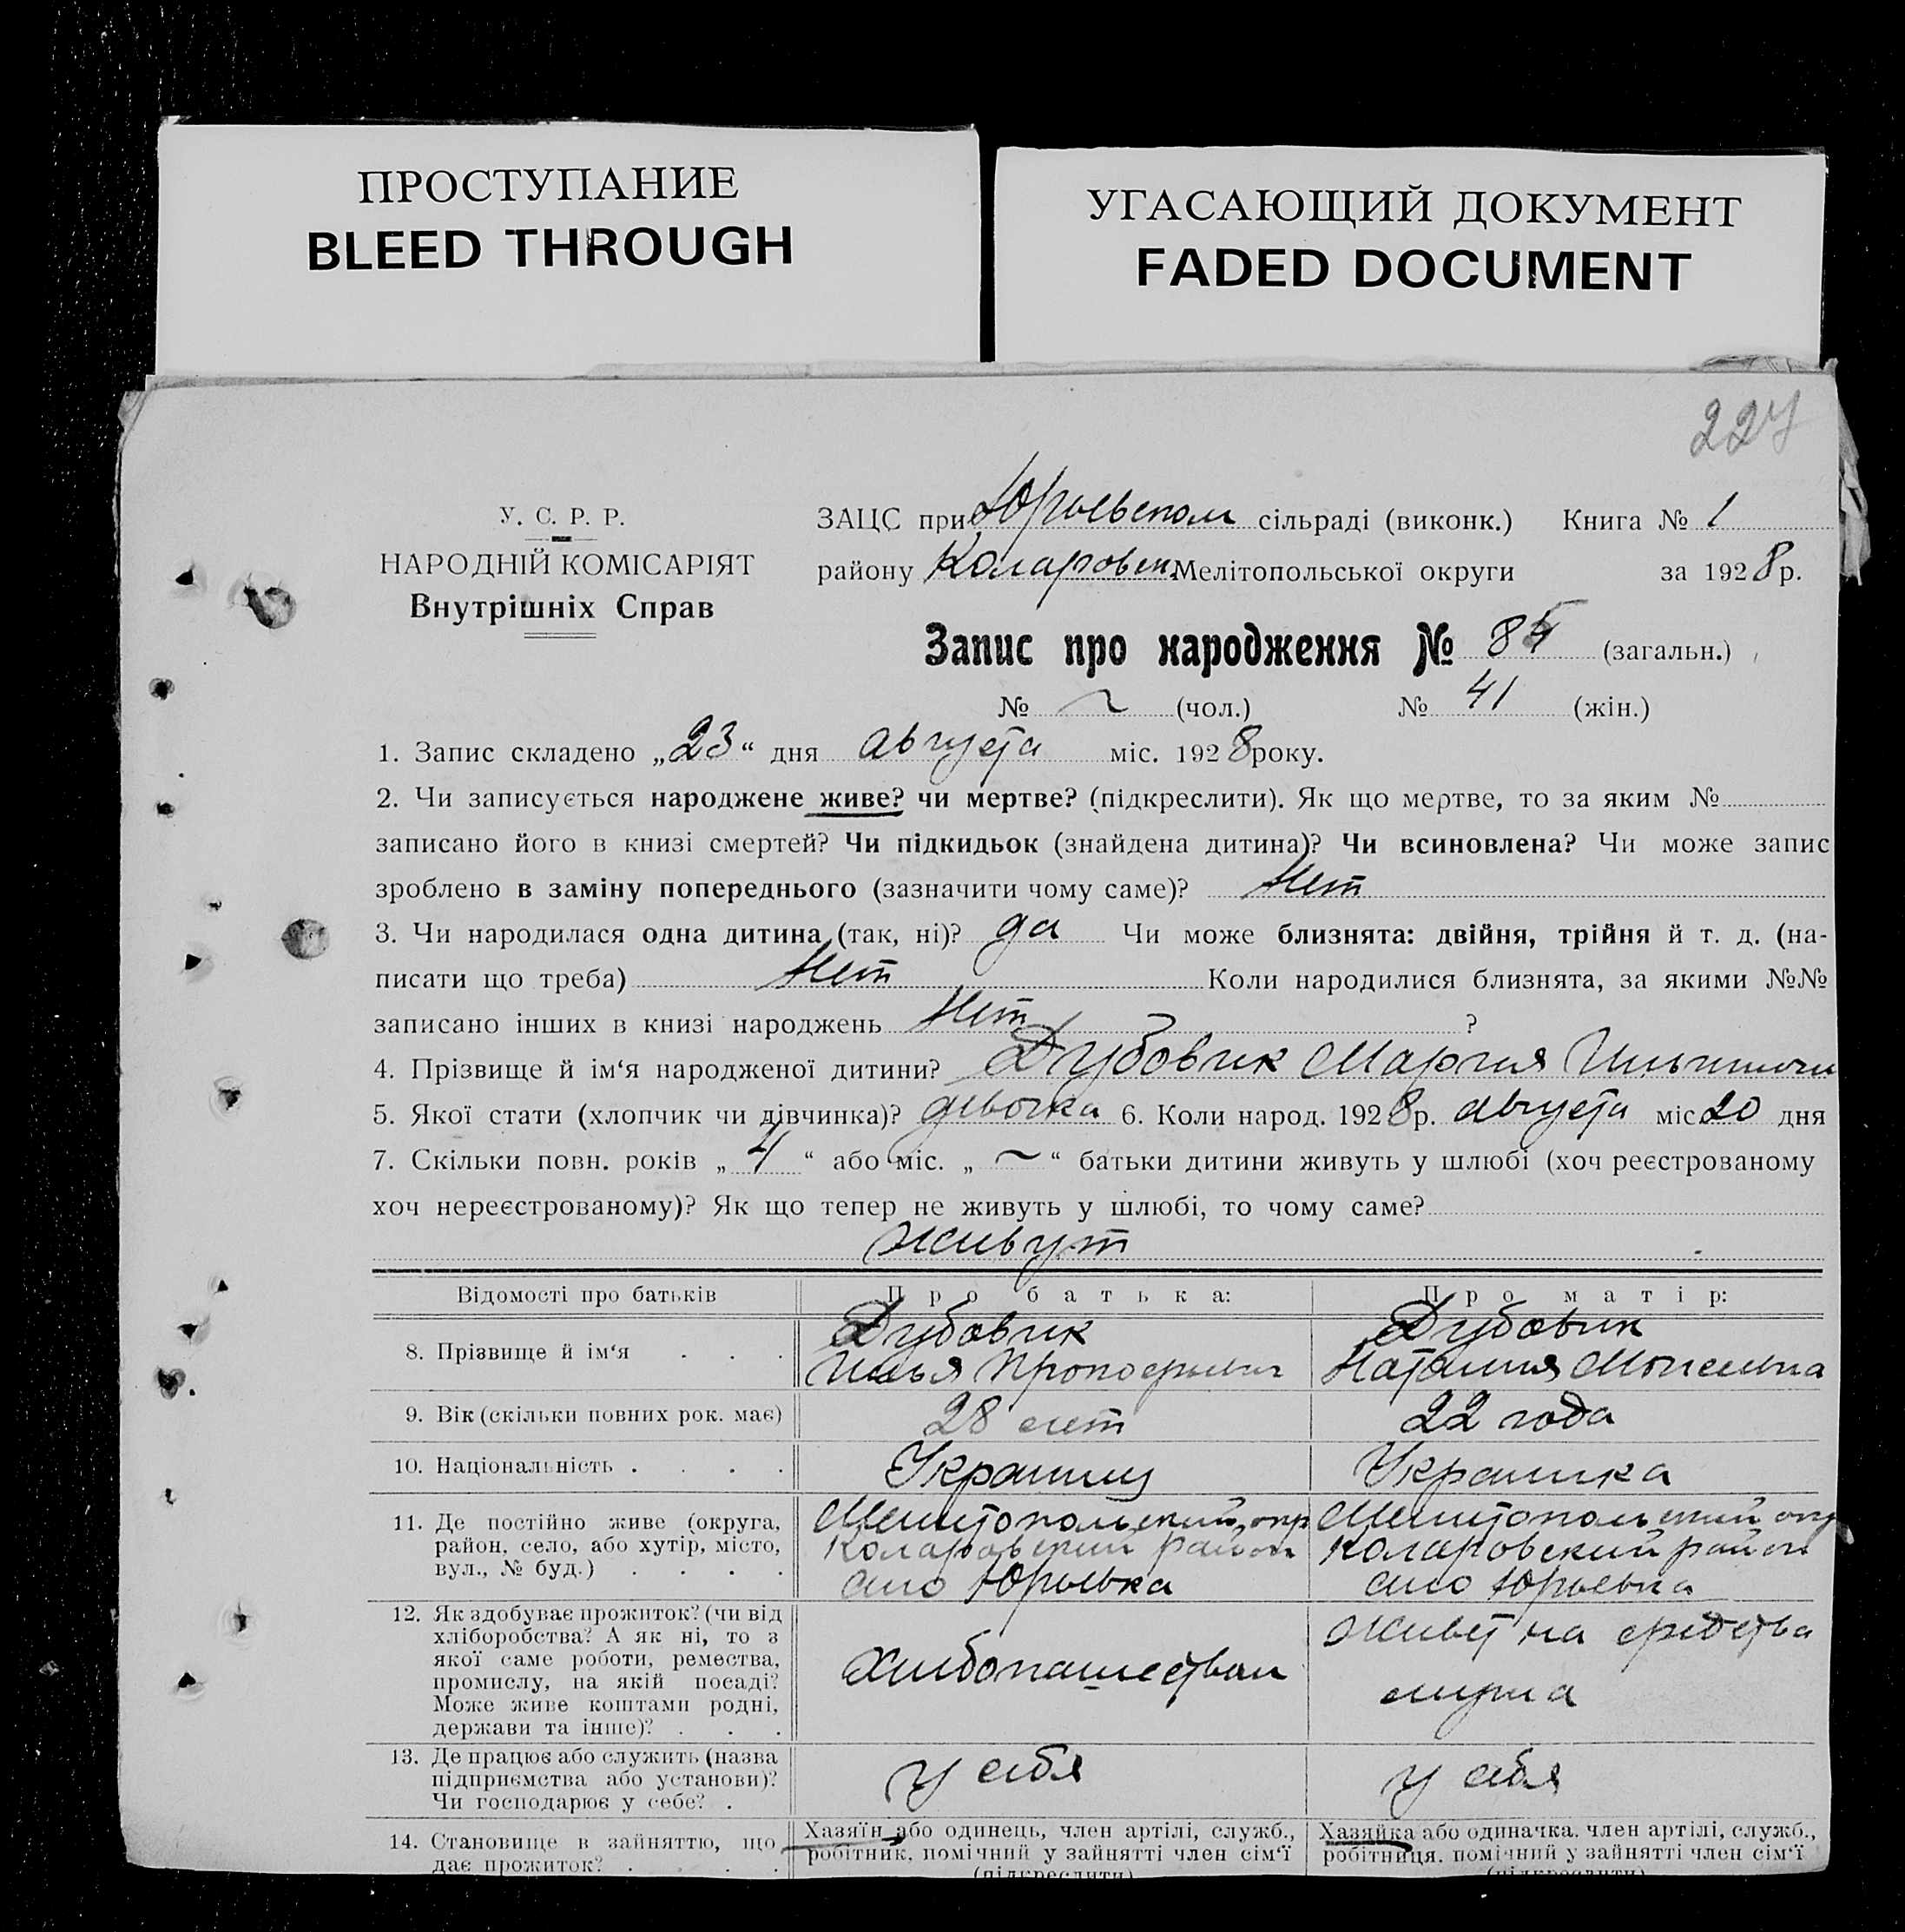 ПРОСТУПАНИЕ
BLEED THROUGH
УГАСАЮЩИЙ ДОКУМЕНТ
FADED DOCUMENT
227
У. С. Р. Р.
НАРОДНІЙ КОМІСАРІЯТ
Внутрішніх Справ
ЗАЦС при Юрьевском сільраді (виконк.) Книга № 1
району Коларовск. Мелітопольської округи за 1928 р.
Запис про народження № (загальн.)
№ ~ (чол.) № 41 (жін.)
1. Запис складено „23“ дня августа міс. 1928 року.
2. Чи записується народжене живе? чи мертве? (підкреслити). Як що мертве, то за яким №
записано його в книзі смертей? Чи підкидьок (знайдена дитина)? Чи всиновлена? Чи може запис
зроблено в заміну попереднього (зазначити чому саме)? Нет
3. Чи народилася одна дитина (так, ні)? да Чи може близнята: двійня, трійня й т. д. (на-
писати що треба) Нет Коли народилися близнята, за якими №№
записано інших в книзі народжень Нет ?
4. Прізвище й ім‘я народженої дитини? Дубовик Мария
5. Якої стати (хлопчик чи дівчинка)? девочка 6. Коли народ. 1928 р. августа міс 20 дня
7. Скільки повн. років „4“ або міс. „~“ батьки дитини живуть у шлюбі (хоч реєстрованому
хоч нереєстрованому)? Як що тепер не живуть у шлюбі, то чому саме?
живут
Відомості про батьків
Про батька:
Про матір:
8. Прізвище й ім‘я . . .
Дубовик
Илья Прокофьевич
Дубовик
Наталия Моисеевна
9. Вік (скільки повних рок. має)
28 лет
22 года
10. Національність . . . .
Украинец
Украинка
11. Де постійно живе (округа,
район, село, або хутір, місто,
вул., № буд.) . . . .
Мелитопольский окр
Коларовский район
село Юрьевка
Мелитопольский окр
Коларовский район
село Юрьевка
12. Як здобуває прожиток? (чи від
хліборобства? А як ні, то з
якої саме роботи, ремества,
промислу, на якій посаді?
Може живе коштами родні,
держави та інше)? . . .
Хлебопашеством
живет на средства
мужа
13. Де працює або служить (назва
підприємства або установи)?
Чи господарює у себе? .
у себя
у себя
14. Становище в зайняттю, що
дає прожиток? . . . .
Хазяїн або одинець, член артілі, служб.,
робітник, помічний у зайнятті член сім‘ї
(підкреслити)
Хазяйка або одиначка. член артілі, служб.,
робітниця. помічний у зайнятті член сім‘ї
(підкреслити)